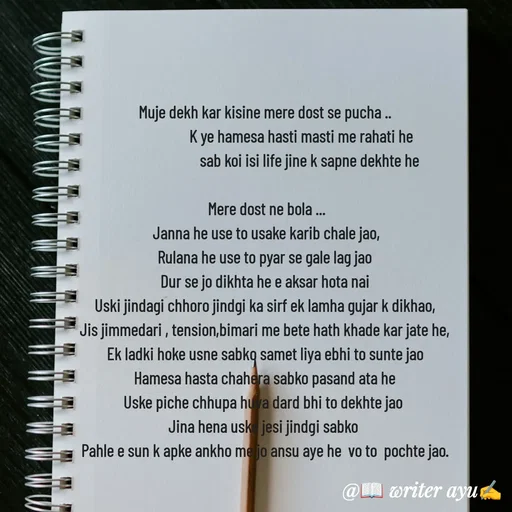 Muje dekh kar kisine mere dost se pucha ..
K ye hamesa hasti masti me rahati he
sab koi isi life jine k sapne dekhte he
Mere dost ne bola ...
Janna he use to usake karib chale jao,
Rulana he use to pyar se gale lag jao
Dur se jo dikhta he e aksar hota nai
Uski jindagi chhoro jindgi ka sirf ek lamha gujar k dikhao,
Jis jimmedari , tension,bimari me bete hath khade kar jate he,
Ek ladki hoke usne sabko samet liya ebhi to sunte jao
Hamesa hasta chahera sabko pasand ata he
Uske piche chhupa huva dard bhi to dekhte jao
Jina hena uske jesi jindgi sabko
Pahle e sun k apke ankho me jo ansu aye he vo to pochte jao.
@📖 writer ayu✍️